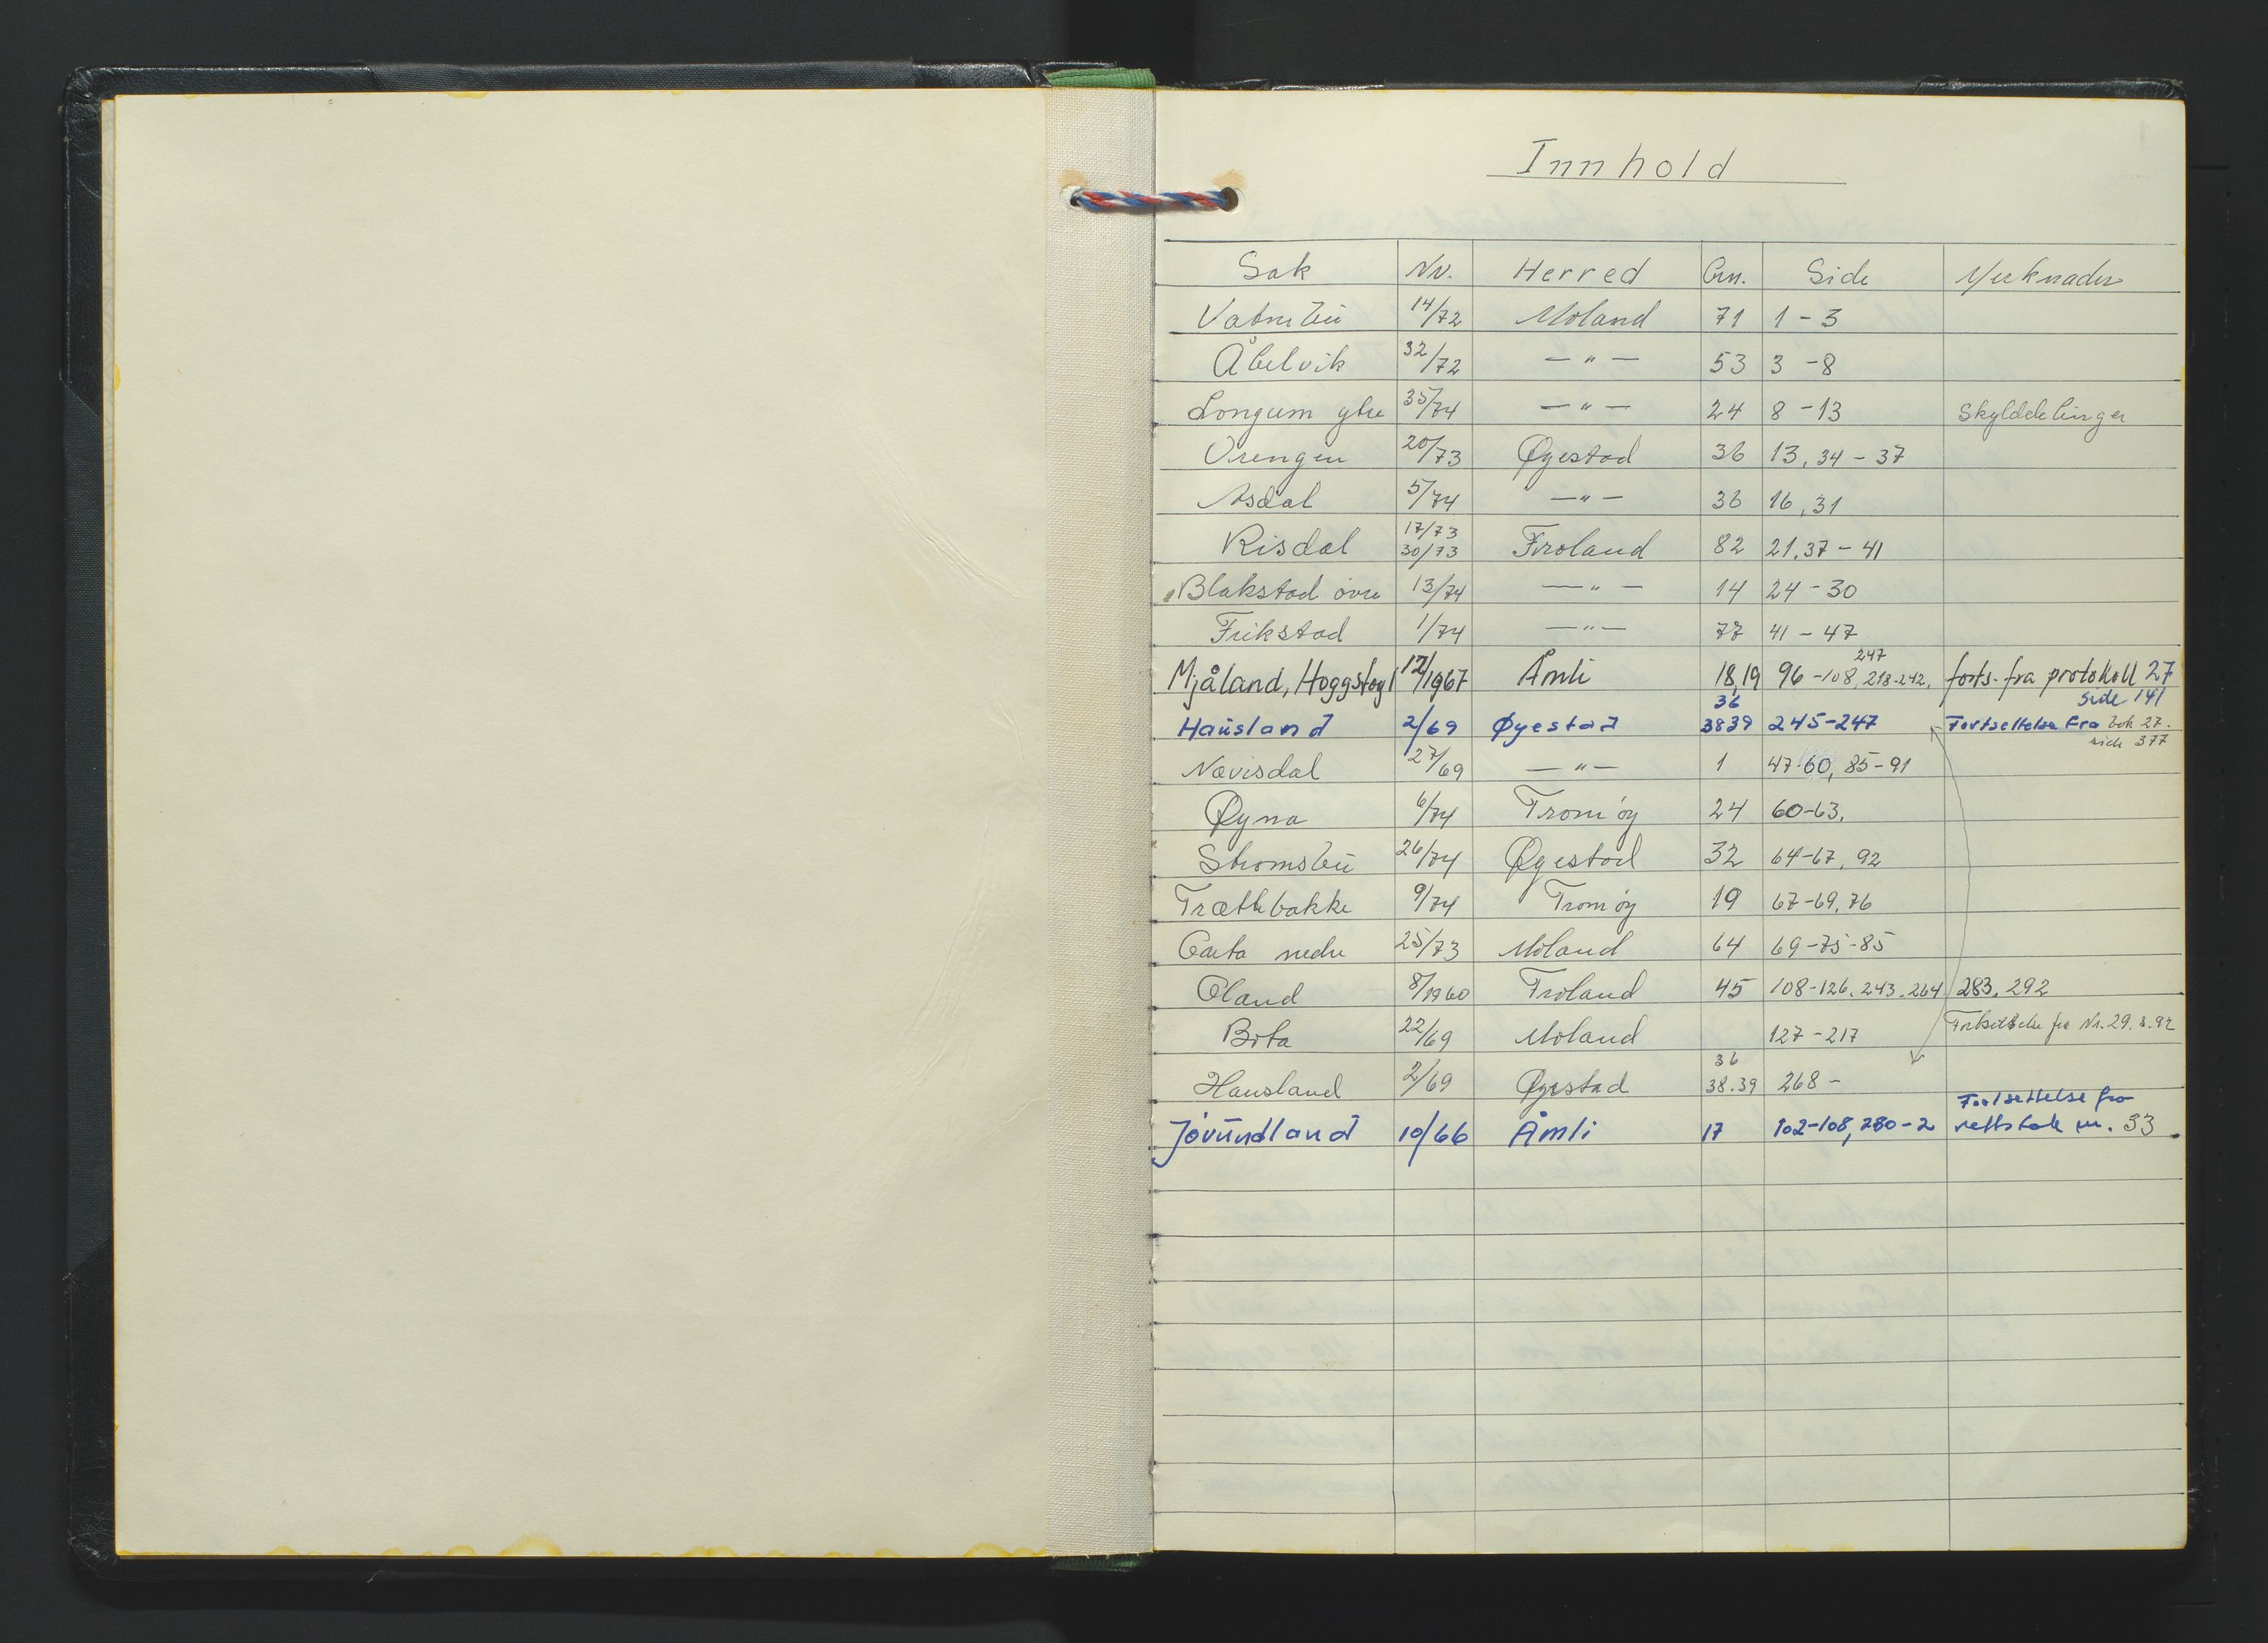 Innhold
Sak Nr. Herred Gn. Side Merknader
Vatnebu 14/72 Moland 71 1 - 3
Åbelvik 32/72 — " — 53 3 - 8
Longum ytre 35/74 — " — 24 8 - 13 Skylddelinger
Vrengen 20/73 Øyestad 36 13, 34 - 37
Asdal 5/74 — " — 36 16, 31
Risdal 17/73 30/73 Froland 82 21, 37 - 41
Blakstad øvre 13/74 — " — 14 24 - 30
Frikstad 1/74 — " — 77 41 - 47
247
Mjåland, Hoggstogl 12/1967 Åmli 18,19 96 - 108, 218-242, forts. fra protokoll 27
36 side 141
Hausland 2/69 Øyestad 38 39 245-247 Fortsettelse fra bok 27.
side 377
Nævisdal 27/69 — " — 1 47-60, 85-91
Øyna 6/74 Tromøy 24 60-63.
Strømsbu 26/74 Øyestad 32 64-67, 92
Trættebakke 9/74 Tromøy 19 67-69, 76
Garta nedre 25/73 Moland 64 69-75-85
Oland 8/1960 Froland 45 108-126, 243, 264 283, 292
Bota 22/69 Moland 127-217 Fortsettelse fra Nr. 29. s. 92
36
Hausland 2/69 Øyestad 38.39 268 -
Fortsettelse fra
Jovundland 10/66 Åmli 17 102-108, 280-2 rettsbok nr. 33